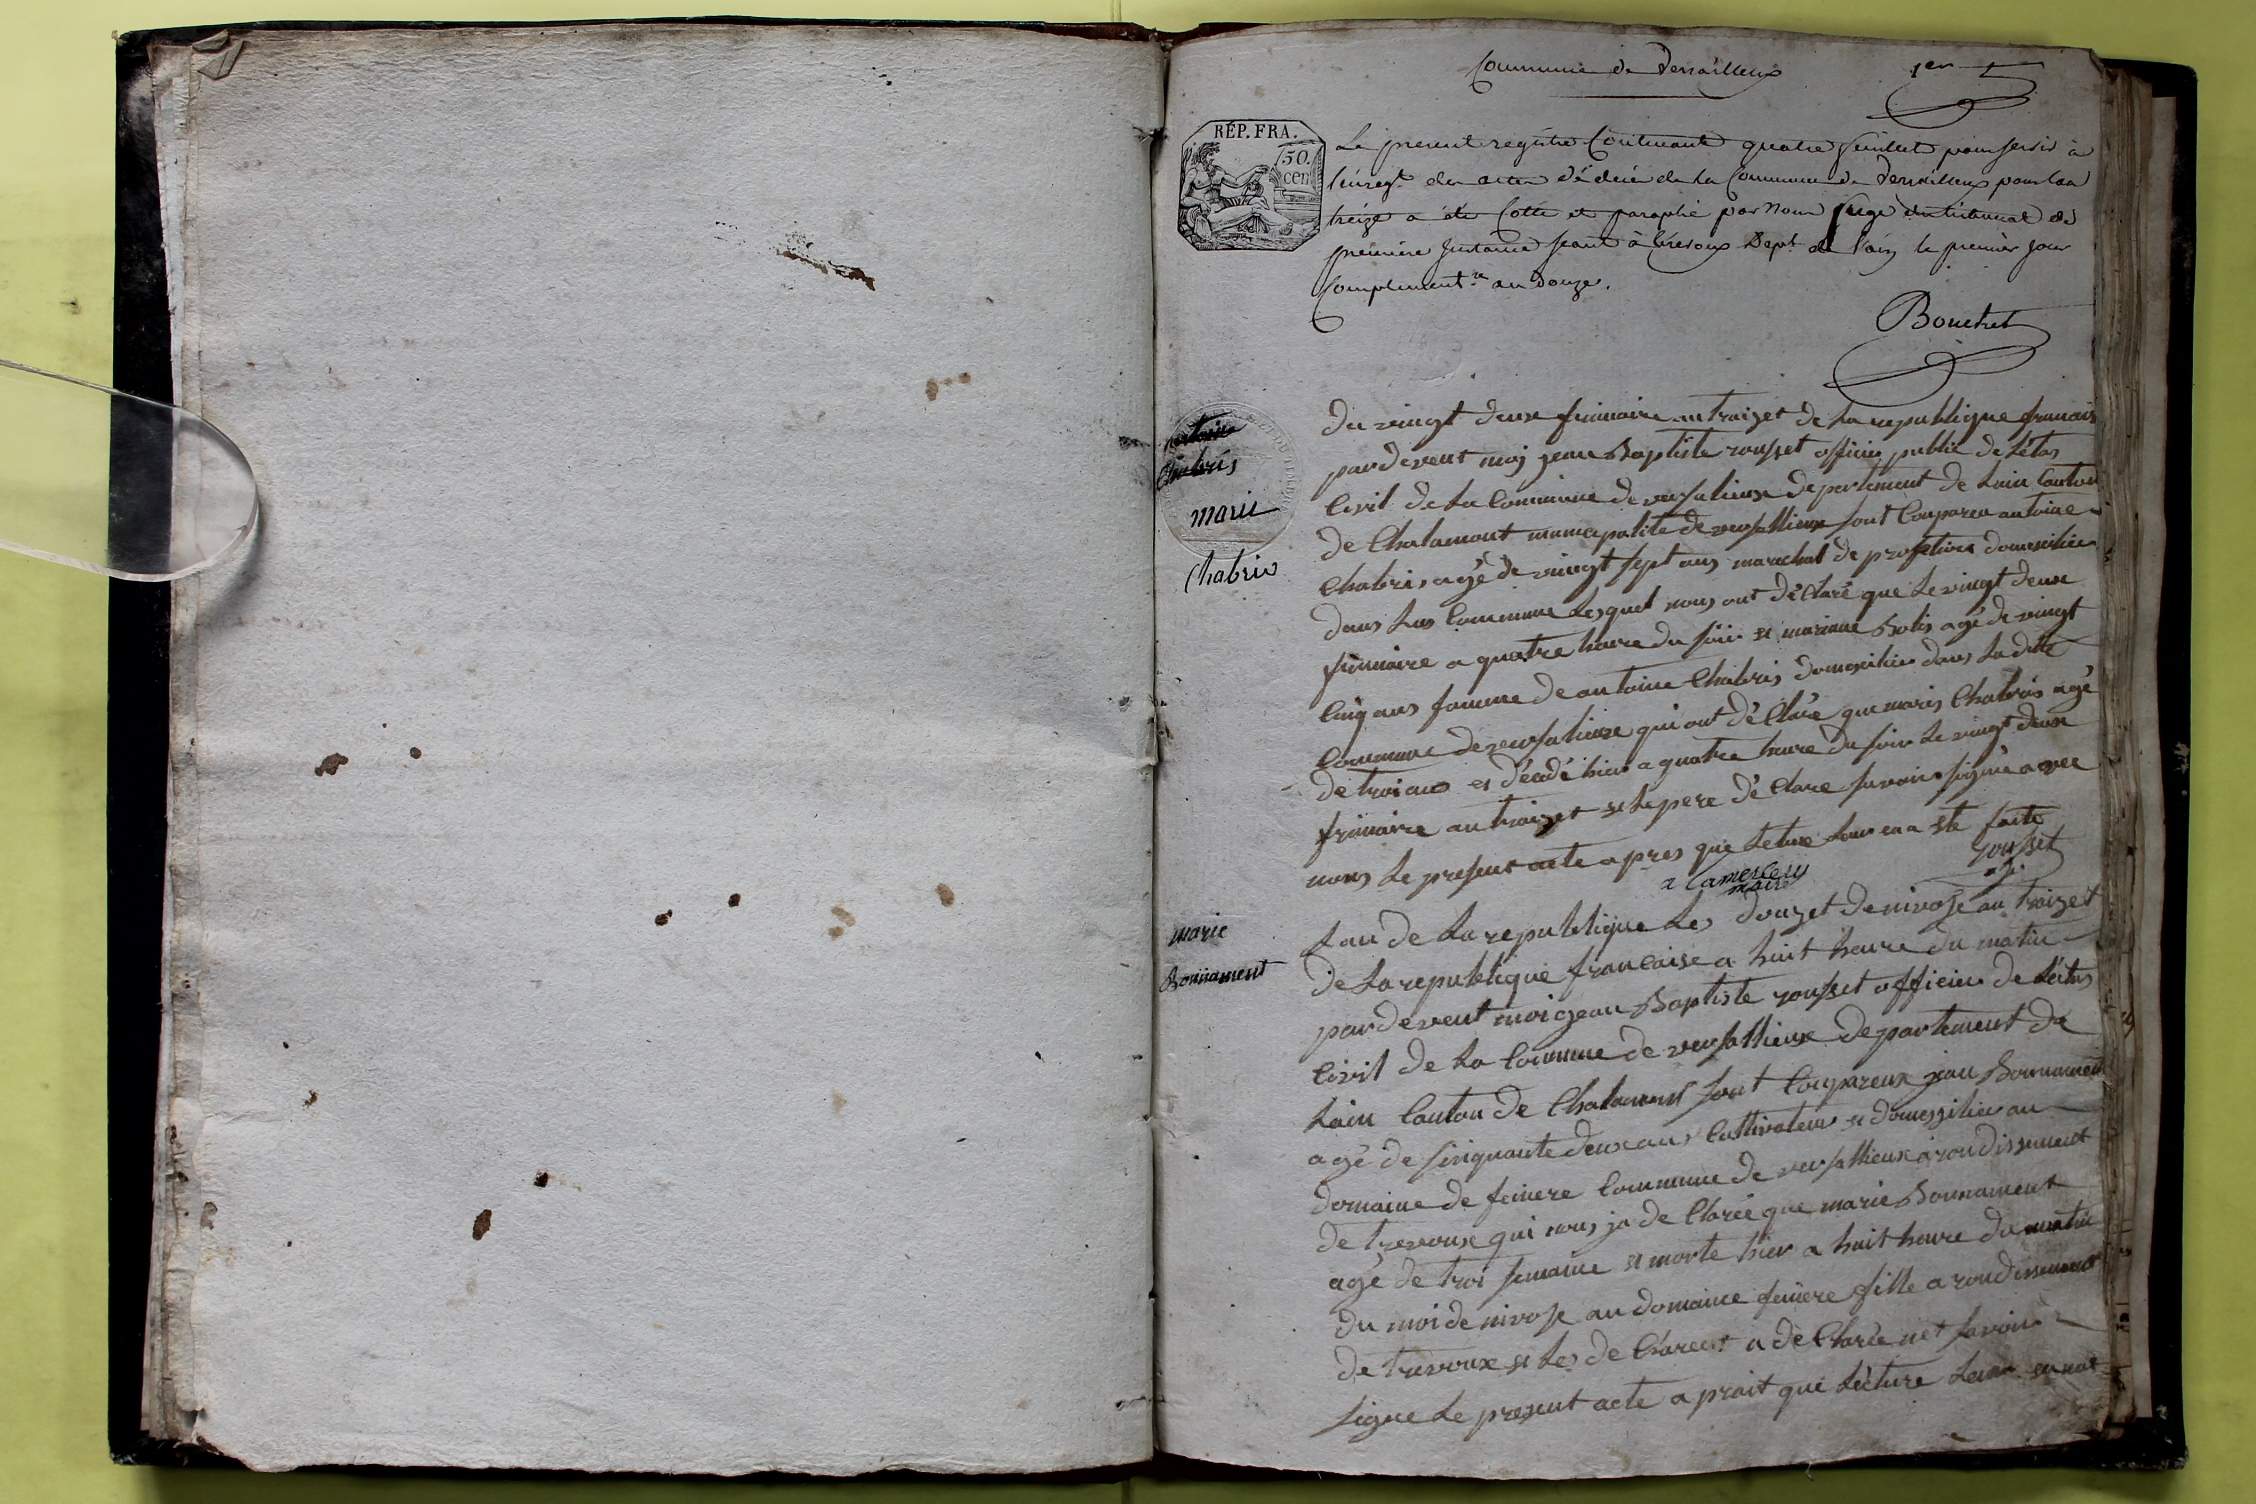 Commune de Versailleux
1er
RÉP. FRA.
50.
cen
Le present registre Contenant quatre feuillet pour servir à
l'enregt. des actes dédécès de la Commune de Versailleux pour l'an
treize a été Cotté et paraphé par Nous Juge du tribunal de
première Instance séant à trevoux Dept. de l'ain le premier jour
Complement.re an Douze.
Bouchet
antoine
Chabris
marie
Chabris
Du vingt deux frimaire an traizet de la republique francais
pardevent moj jean Baptiste rousset officier public de L'étas
Civil de La Commune de versalieux departement de Lain Canton
de Chalamont municipalite de versallieux sont Compareu antoine
Chabris agé de vingt sept ans marechal de profetion domesilier
dans Lus Commune Lesquel nous ont déClaré que Le vingt deux
frimaire a quatre heure du soir et mariane Bolis agé de vingt
Cinq ans famme de antoine Chabris domesilier dans La ditte
Commune de versalieux qui ont déClaré que marie Chabris agé
de troi ans et décédé hier a quatre heure du soir Le vingt deux
frimaire an traizet et Le pere déClare savoir signié avec
nous Le present acte apres que Leture Leur en a ete faite
rousset
a Lamercery
maire
Lan de La republique Les douzet de nivose an traizet
de La republique francaise a huit heure du matin
pardevent moi jean Baptiste rousset officier de L'étas
Civil de La Commune de versallieux departement de
Lain Canton de Chalamont sont Conpareux jean Bonnament
agé de sinquante deux ans Cultivateur et domessilier au
domaine de feinere Commune de versallieux arondissement
de trevoux qui nous ja de Clarée que marie Bonnament
agé de troi semaine et morte hier a huit heure du matin
du moi de nivose au domaine feinere fille arondissement
de trevoux et Les de Clareent a de Clarée net savoir
signe Le present acte a prait que Lecture Leur en nat
marie
Bonnament